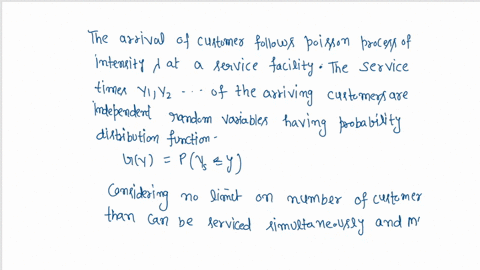 The arrival of customer follows poisson process of
intensity λ at a service facility. The service
times Y1, Y2 ... of the arriving customers are
independent random variables having probability
distribution function.
G(y) = P(Ys ≤ y)
Considering no limit on number of customer
than can be serviced simultaneously and